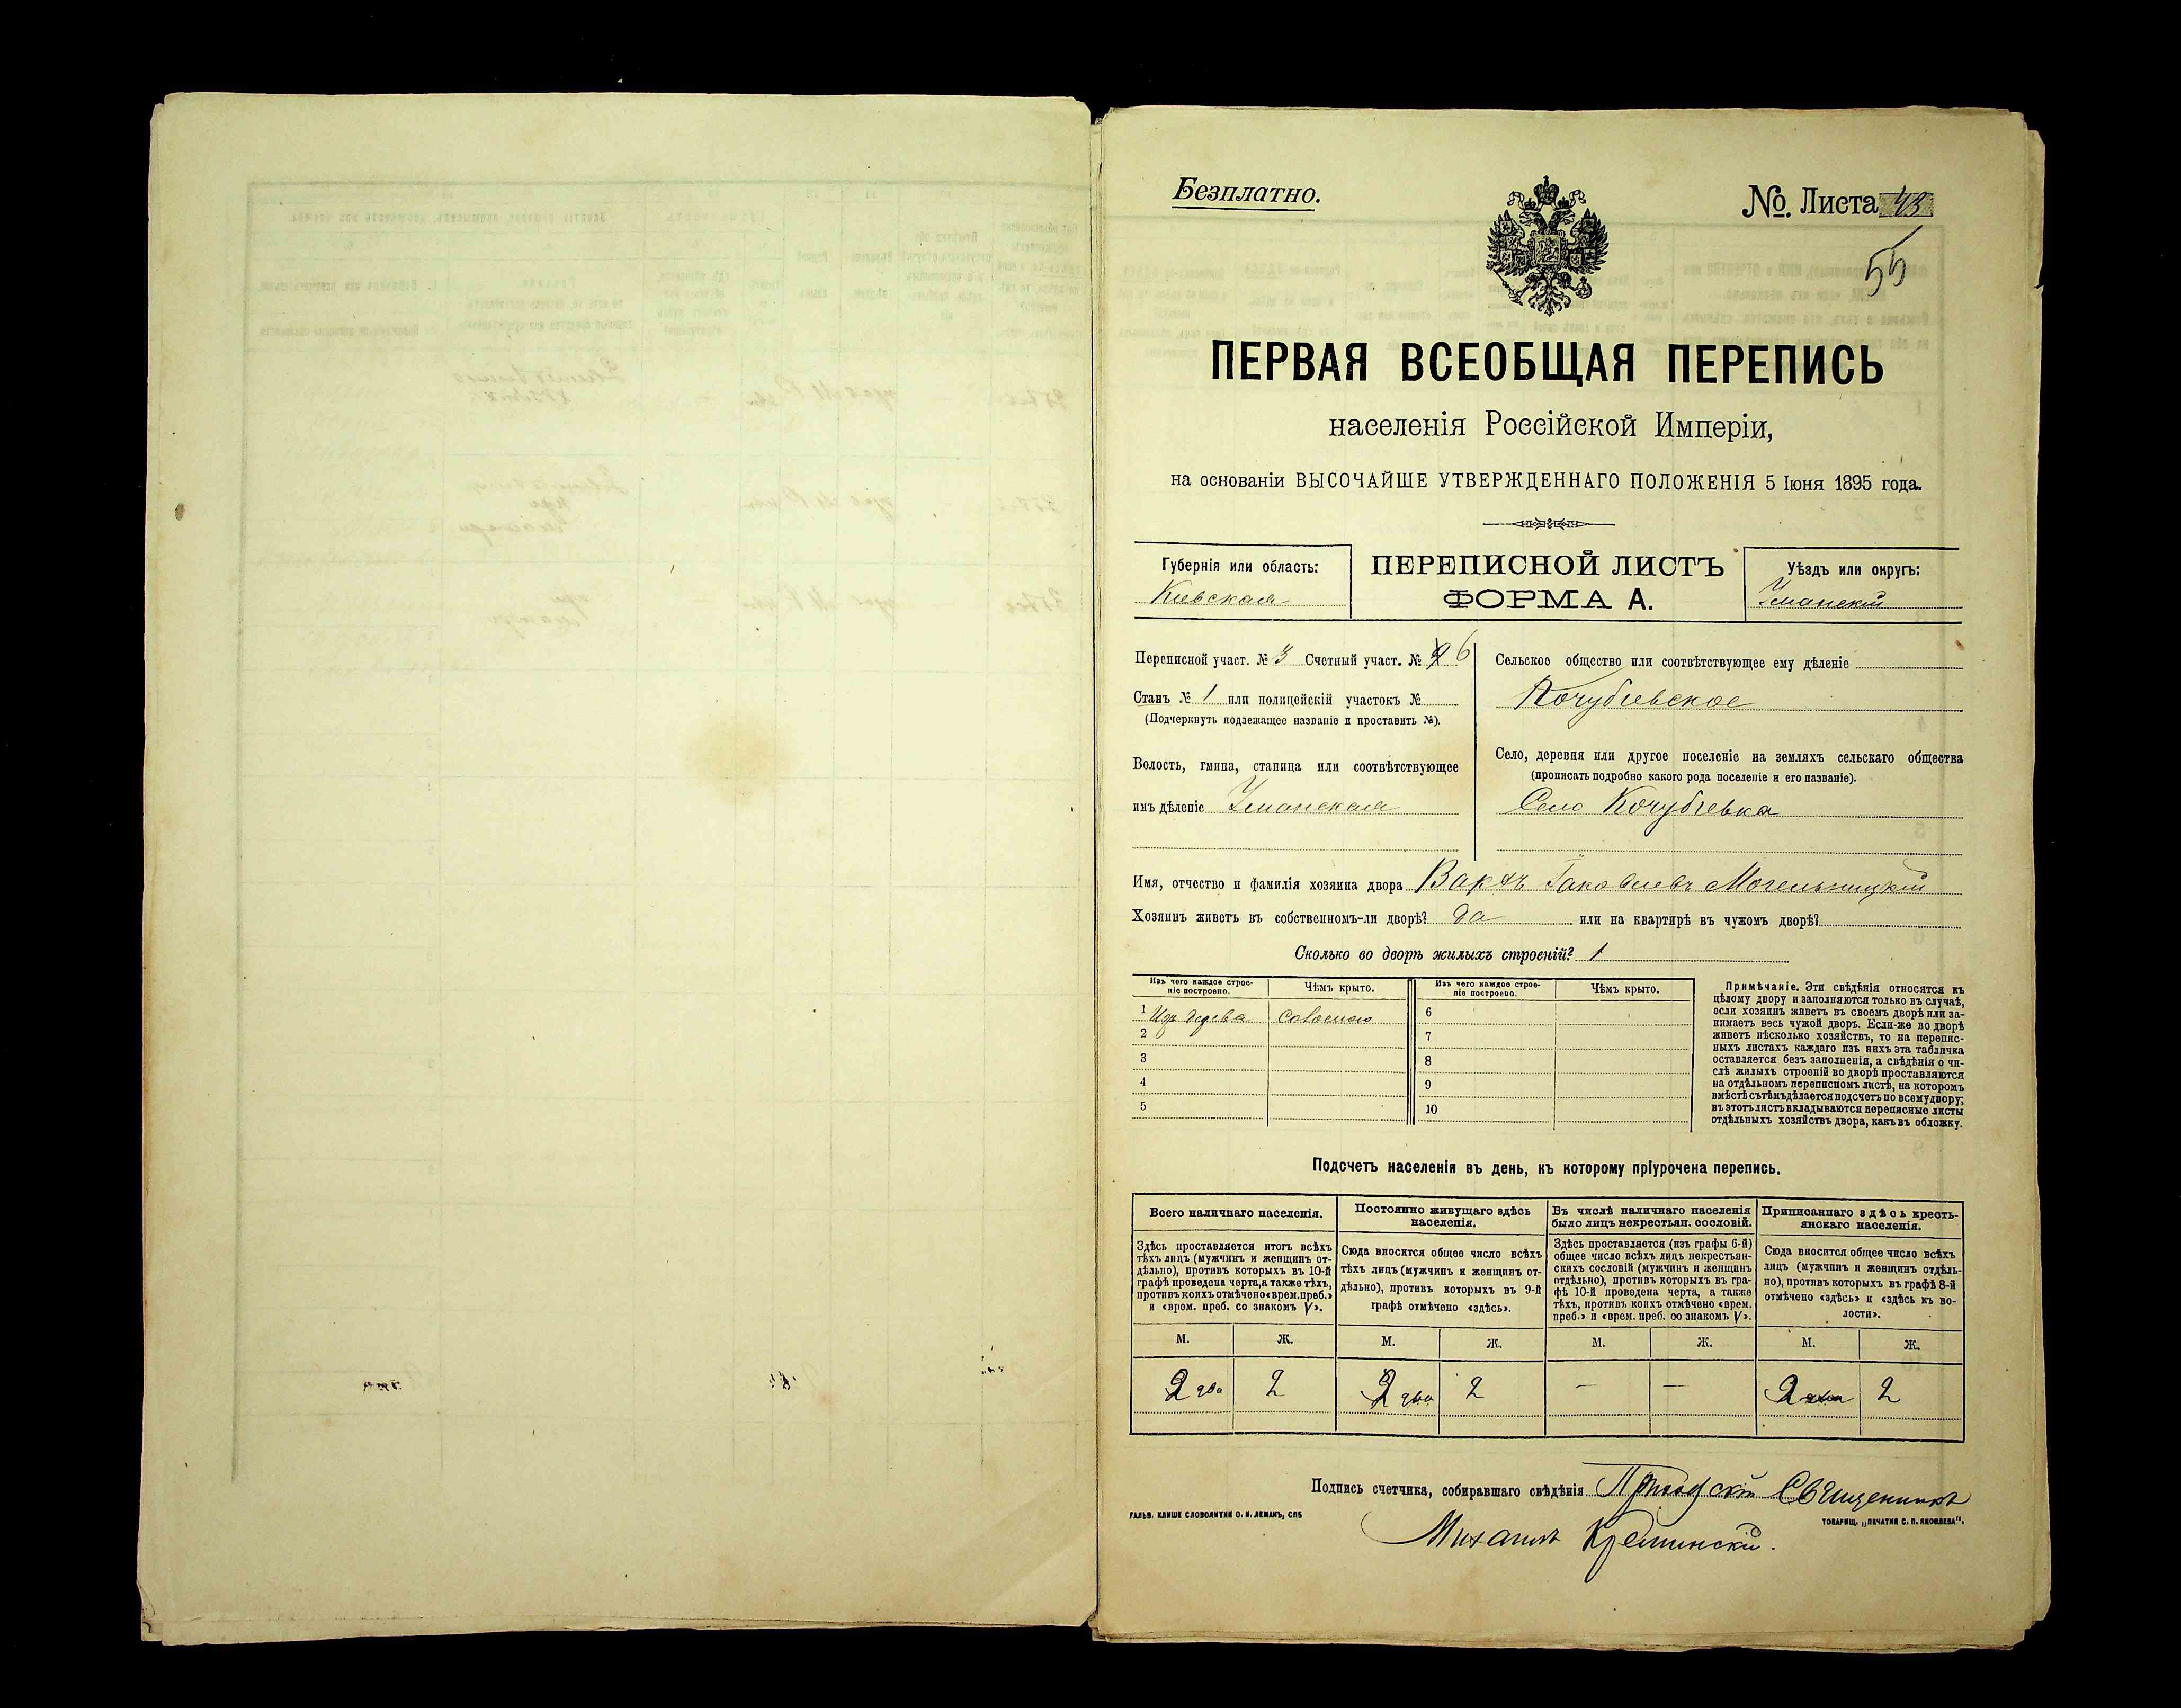 Безплатно.
№. Листа 43
55
ПЕРВАЯ ВСЕОБЩАЯ ПЕРЕПИСЬ
населенія Россійской Имперіи,
на основаніи ВЫСОЧАЙШЕ УТВЕРЖДЕННАГО ПОЛОЖЕНІЯ 5 Іюня 1895 года.
Губернія или область:
Кіевская
ПЕРЕПИСНОЙ ЛИСТЪ
ФОРМА А.
Уѣздъ или округъ:
Уманскій
Переписной участ. № 3 Счетный участ. № 6
Станъ № 1 или полицейскій участокъ №
(Подчеркнуть подлежащее названіе и проставить №).
Волость, гмина, станица или соотвѣтствующее
имъ дѣленіе Уманская
Сельское общество или соотвѣтствующее ему дѣленіе
Кочубіевское
Село, деревня или другое поселеніе на земляхъ сельскаго общества
(прописать подробно какого рода поселеніе и его названіе).
Село Кочубіевка
Имя, отчество и фамилія хозяина двора Іаковлевъ Могельницкій
Хозяинъ живетъ въ собственномъ-ли дворѣ? да или на квартирѣ въ чужомъ дворѣ?
Сколько во дворѣ жилыхъ строеній? 1
Изъ чего каждое строе-
ніе построено.
Чѣмъ крыто.
Изъ чего каждое строе-
ніе построено.
Чѣмъ крыто.
1 Изъ дерева Соломою
2
3
4
5
6
7
8
9
10
Примѣчаніе. Эти свѣдѣнія относятся къ
цѣлому двору и заполняются только въ случаѣ,
если хозяинъ живетъ въ своемъ дворѣ или за-
нимаетъ весь чужой дворъ. Если-же во дворѣ
живетъ нѣсколько хозяйствъ, то на перепис-
ныхъ листахъ каждаго изъ нихъ эта табличка
оставляется безъ заполненія, а свѣдѣнія о чи-
слѣ жилыхъ строеній во дворѣ проставляются
на отдѣльномъ переписномъ листѣ, на которомъ
вмѣстѣ съ тѣмъ дѣлается подсчетъ по всему двору;
въ этотъ листъ вкладываются переписные листы
отдѣльныхъ хозяйствъ двора, какъ въ обложку.
Подсчетъ населенія въ день, къ которому пріурочена перепись.
Всего наличнаго населенія.
Здѣсь проставляется итогъ всѣхъ
тѣхъ лицъ (мужчинъ и женщинъ от-
дѣльно), противъ которыхъ въ 10-й
графѣ проведена черта, а также тѣхъ,
противъ коихъ отмѣчено «врем. преб.»
и «врем. преб. со знакомъ V».
Постоянно живущаго здѣсь
населенія.
Сюда вносится общее число всѣхъ
тѣхъ лицъ (мужчинъ и женщинъ от-
дѣльно), противъ которыхъ въ 9-й
графѣ отмѣчено «здѣсь».
Въ числѣ наличнаго населенія
было лицъ некрестьян. сословій.
Здѣсь проставляется (изъ графы 6-й)
общее число всѣхъ лицъ некрестьян-
скихъ сословій (мужчинъ и женщинъ
отдѣльно), противъ которыхъ въ гра-
фѣ 10-й проведена черта, а также
тѣхъ, противъ коихъ отмѣчено «врем.
преб.» и «врем. преб. со знакомъ V».
Приписаннаго здѣсь кресть-
янскаго населенія.
Сюда вносится общее число всѣхъ
лицъ (мужчинъ и женщинъ отдѣль-
но), противъ которыхъ въ графѣ 8-й
отмѣчено «здѣсь» и «здѣсь къ во-
лости».
М. Ж. М. Ж. М. Ж. М. Ж.
2 два 2 2 два 2 — — 2 два 2
Подпись счетчика, собиравшаго свѣдѣнія Священникъ
Михаилъ Креминскій.
ГАЛЬВ. КЛИШЕ СЛОВОЛИТНИ О. И. ЛЕМАНЪ, СПБ
ТОВАРИЩ. „ПЕЧАТНЯ С. П. ЯКОВЛЕВА".